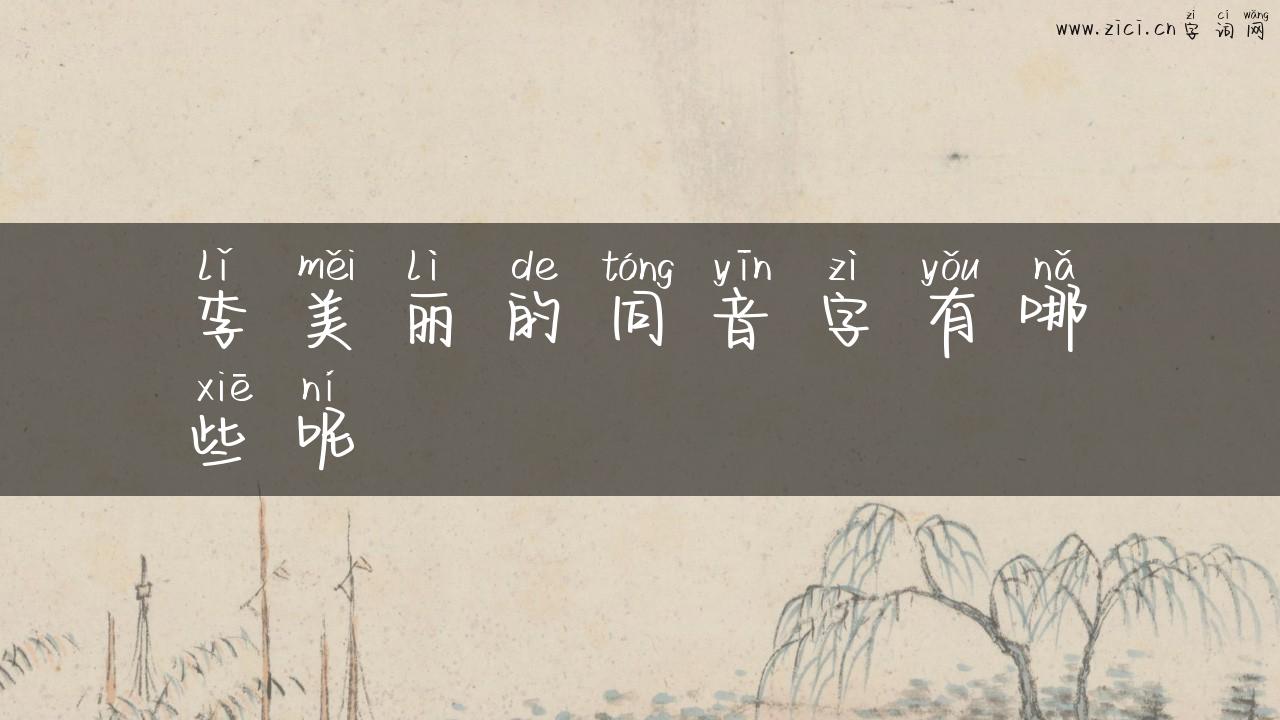 zì cí wǎng
www.zici.cn 字词网
lǐ měi lì de tóng yīn zì yǒu nǎ
李美丽的同音字有哪
xiē ní
些呢